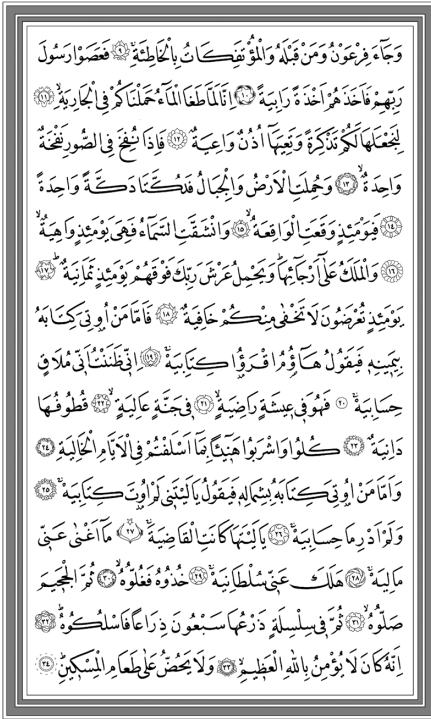 وَجَاءَ فِرْعَوْنُ وَمَنْ قَبْلَهُ وَالْمُؤْتَفِكَاتُ بِالْخَاطِئَةِۚ ﴿٩﴾ فَعَصَوْا رَسُولَ
رَبِّهِمْ فَاَخَذَهُمْ اَخْذَةً رَابِيَةً ﴿١٠﴾ اِنَّا لَمَّا طَغَا الْمَٓاءُ حَمَلْنَاكُمْ فِي الْجَارِيَةِۙ ﴿١١﴾
لِنَجْعَلَهَا لَكُمْ تَذْكِرَةً وَتَعِيَهَٓا اُذُنٌ وَاعِيَةٌ ﴿١٢﴾ فَاِذَا نُفِخَ فِي الصُّورِ نَفْخَةٌ
وَاحِدَةٌۙ ﴿١٣﴾ وَحُمِلَتِ الْاَرْضُ وَالْجِبَالُ فَدُكَّتَا دَكَّةً وَاحِدَةً
﴿١٤﴾ فَيَوْمَئِذٍ وَقَعَتِ الْوَاقِعَةُۙ ﴿١٥﴾ وَانْشَقَّتِ السَّمَٓاءُ فَهِيَ يَوْمَئِذٍ وَاهِيَةٌۙ
﴿١٦﴾ وَالْمَلَكُ عَلٰٓى اَرْجَٓائِهَاۜ وَيَحْمِلُ عَرْشَ رَبِّكَ فَوْقَهُمْ يَوْمَئِذٍ ثَمَانِيَةٌۜ ﴿١٧﴾
يَوْمَئِذٍ تُعْرَضُونَ لَا تَخْفٰى مِنْكُمْ خَافِيَةٌ ﴿١٨﴾ فَاَمَّا مَنْ اُو۫تِيَ كِتَابَهُ
بِيَمِينِهِ فَيَقُولُ هَٓاؤُ۬مُ اقْرَؤُ۫ا كِتَابِيَهْۚ ﴿١٩﴾ اِنِّي ظَنَنْتُ اَنِّي مُلَاقٍ
حِسَابِيَهْۚ ﴿٢٠﴾ فَهُوَ فِي عِيشَةٍ رَاضِيَةٍۙ ﴿٢١﴾ فِي جَنَّةٍ عَالِيَةٍۙ ﴿٢٢﴾ قُطُوفُهَا
دَانِيَةٌ ﴿٢٣﴾ كُلُوا وَاشْرَبُوا هَنِٓيئًا بِمَٓا اَسْلَفْتُمْ فِي الْاَيَّامِ الْخَالِيَةِ ﴿٢٤﴾
وَاَمَّا مَنْ اُو۫تِيَ كِتَابَهُ بِشِمَالِهِ فَيَقُولُ يَا لَيْتَنِي لَمْ اُو۫تَ كِتَابِيَهْۚ ﴿٢٥﴾
وَلَمْ اَدْرِ مَا حِسَابِيَهْۚ ﴿٢٦﴾ يَا لَيْتَهَا كَانَتِ الْقَاضِيَةَۚ ﴿٢٧﴾ مَٓا اَغْنٰى عَنِّي
مَالِيَهْۚ ﴿٢٨﴾ هَلَكَ عَنِّي سُلْطَانِيَهْۚ ﴿٢٩﴾ خُذُوهُ فَغُلُّوهُۙ ﴿٣٠﴾ ثُمَّ الْجَحِيمَ
صَلُّوهُۙ ﴿٣١﴾ ثُمَّ فِي سِلْسِلَةٍ ذَرْعُهَا سَبْعُونَ ذِرَاعًا فَاسْلُكُوهُۜ ﴿٣٢﴾
اِنَّهُ كَانَ لَا يُؤْمِنُ بِاللّٰهِ الْعَظِيمِۙ ﴿٣٣﴾ وَلَا يَحُضُّ عَلٰى طَعَامِ الْمِسْكِينِۜ ﴿٣٤﴾